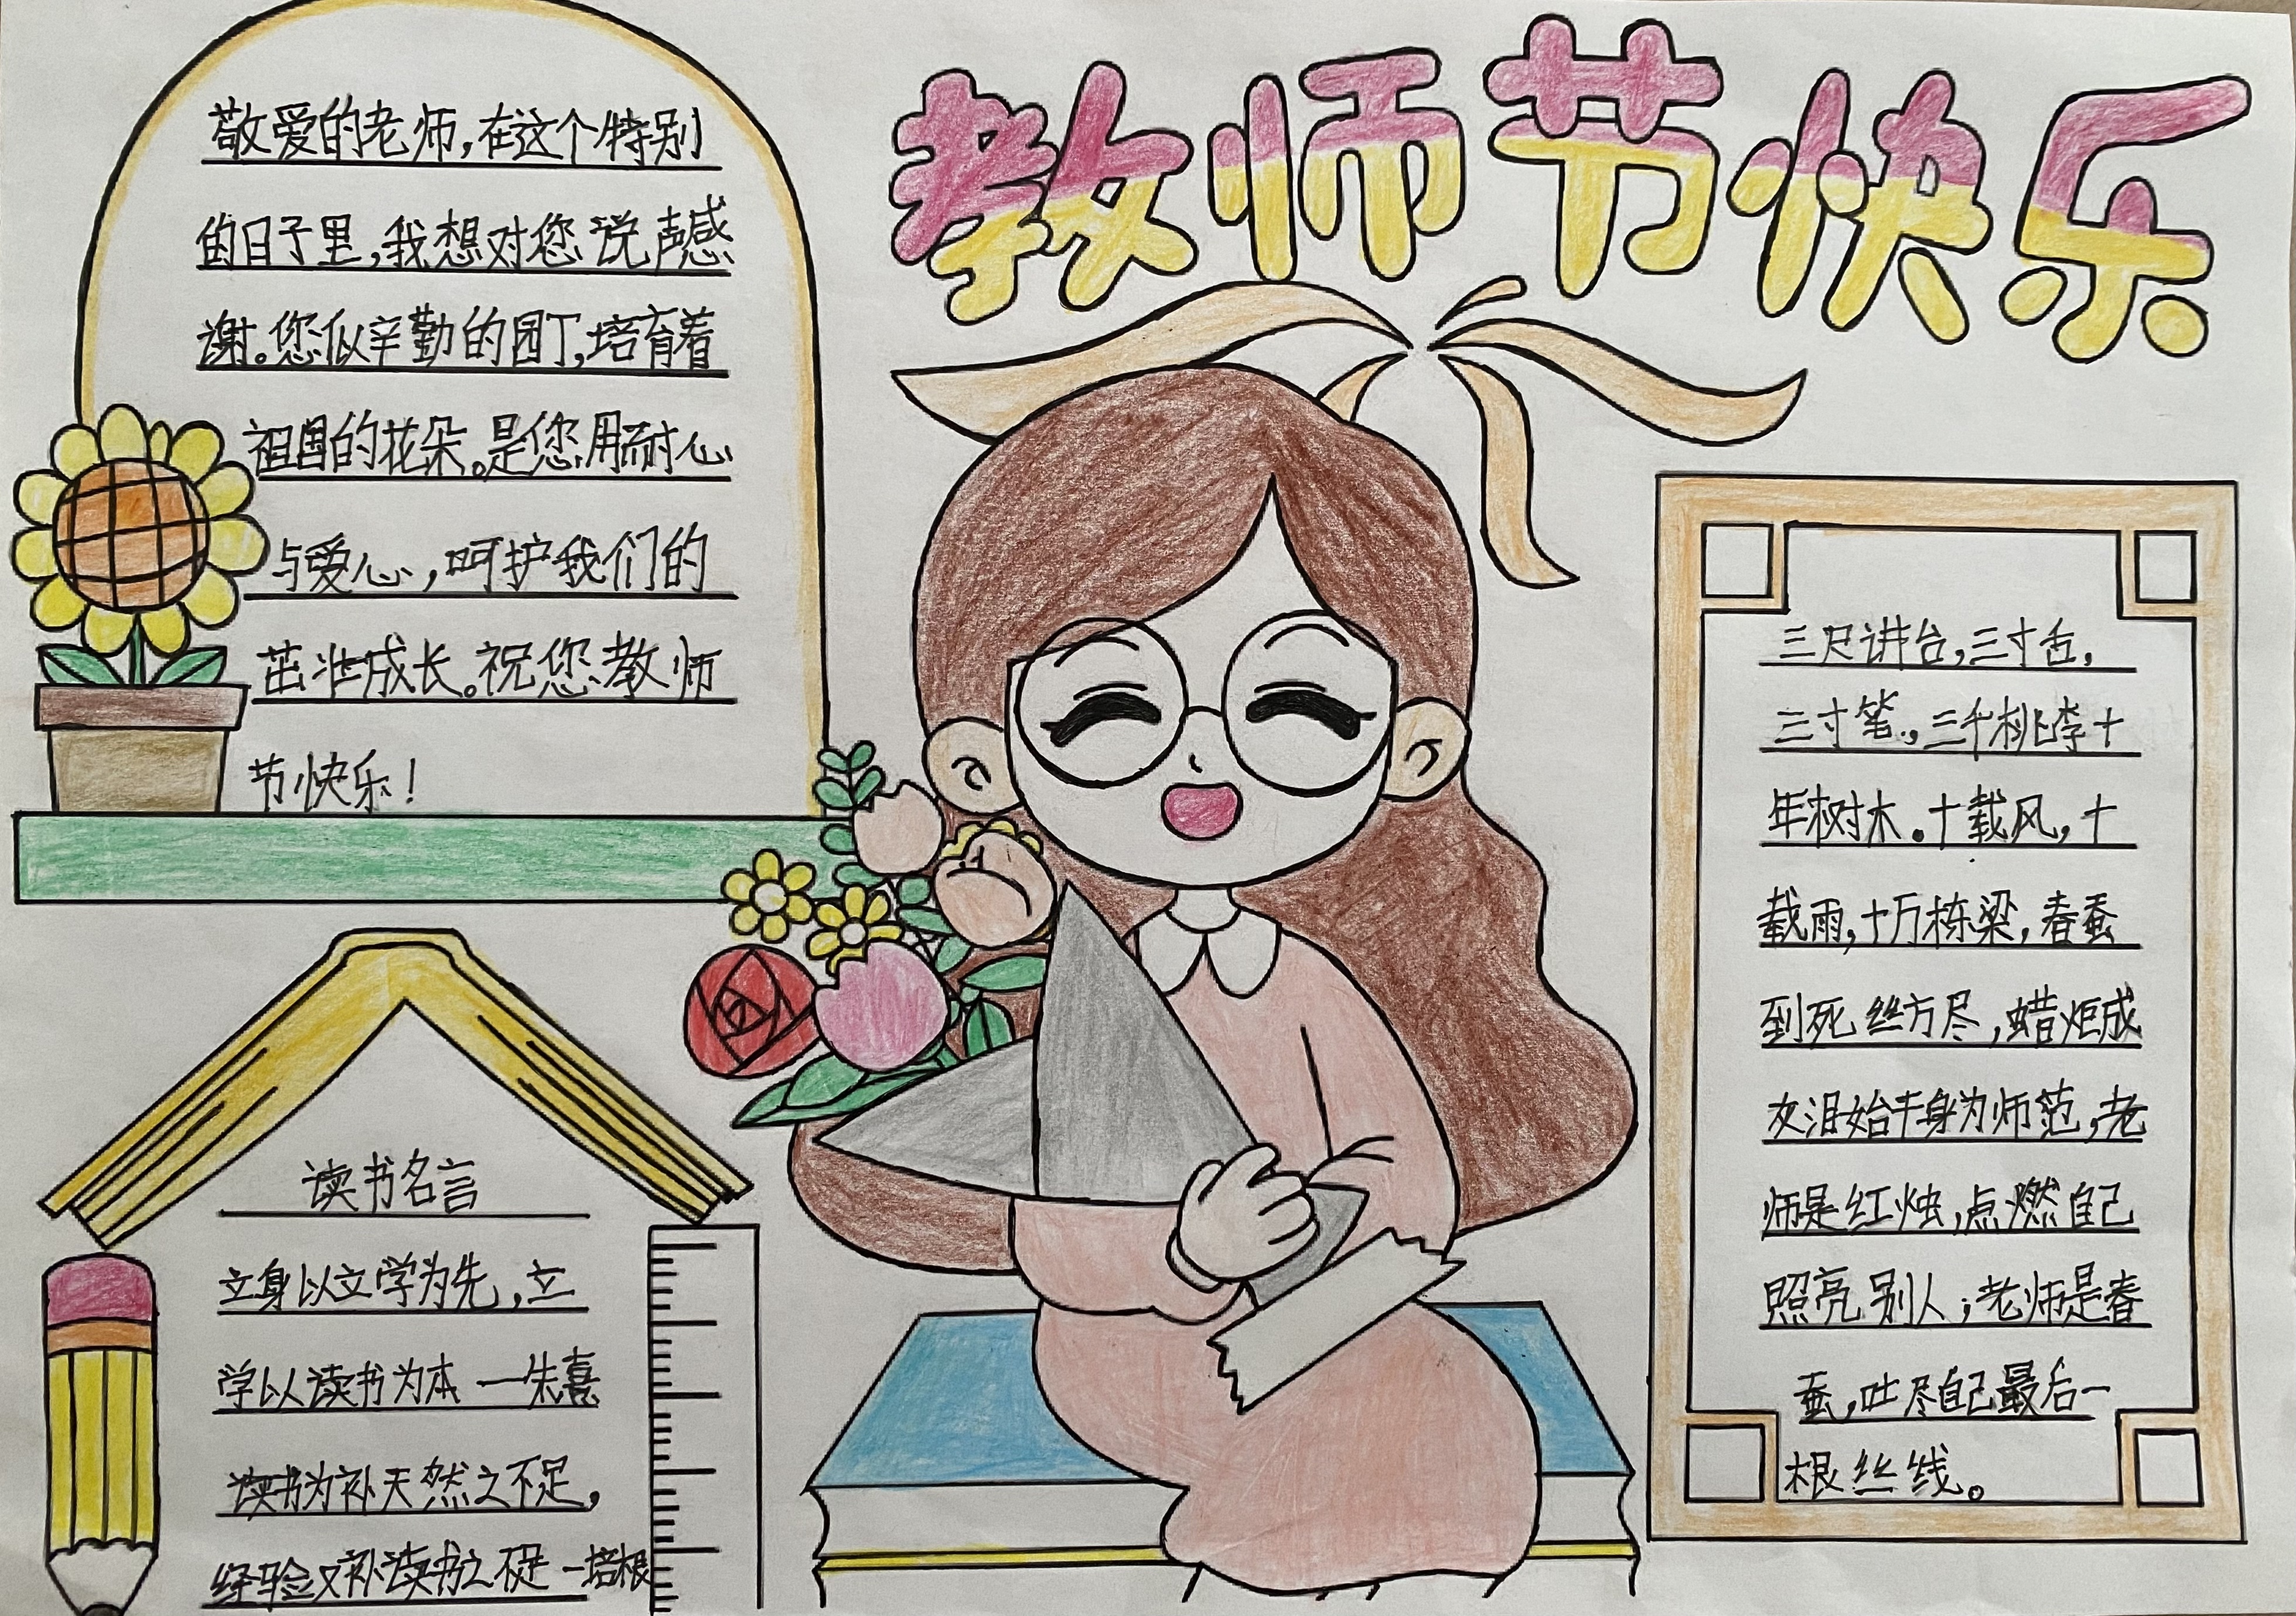 教师节快乐
敬爱的老师,在这个特别
的日子里,我想对您说声感
谢。您似辛勤的园丁,培育着
祖国的花朵。是您用耐心
与爱心,呵护我们的
茁壮成长。祝您教师
节快乐!
读书名言
立身以立学为先,立
学以读书为本 一朱熹
读书为补天然之不足,
经验又补读书之不足 一培根
三尺讲台,三寸舌,
三寸笔,三千桃李十
年树木。十载风,十
载雨,十万栋梁,春蚕
到死丝方尽,蜡炬成
灰泪始干身为师范,老
师是红烛,点燃自己
照亮别人;老师是春
蚕,吐尽自己最后一
根丝线。